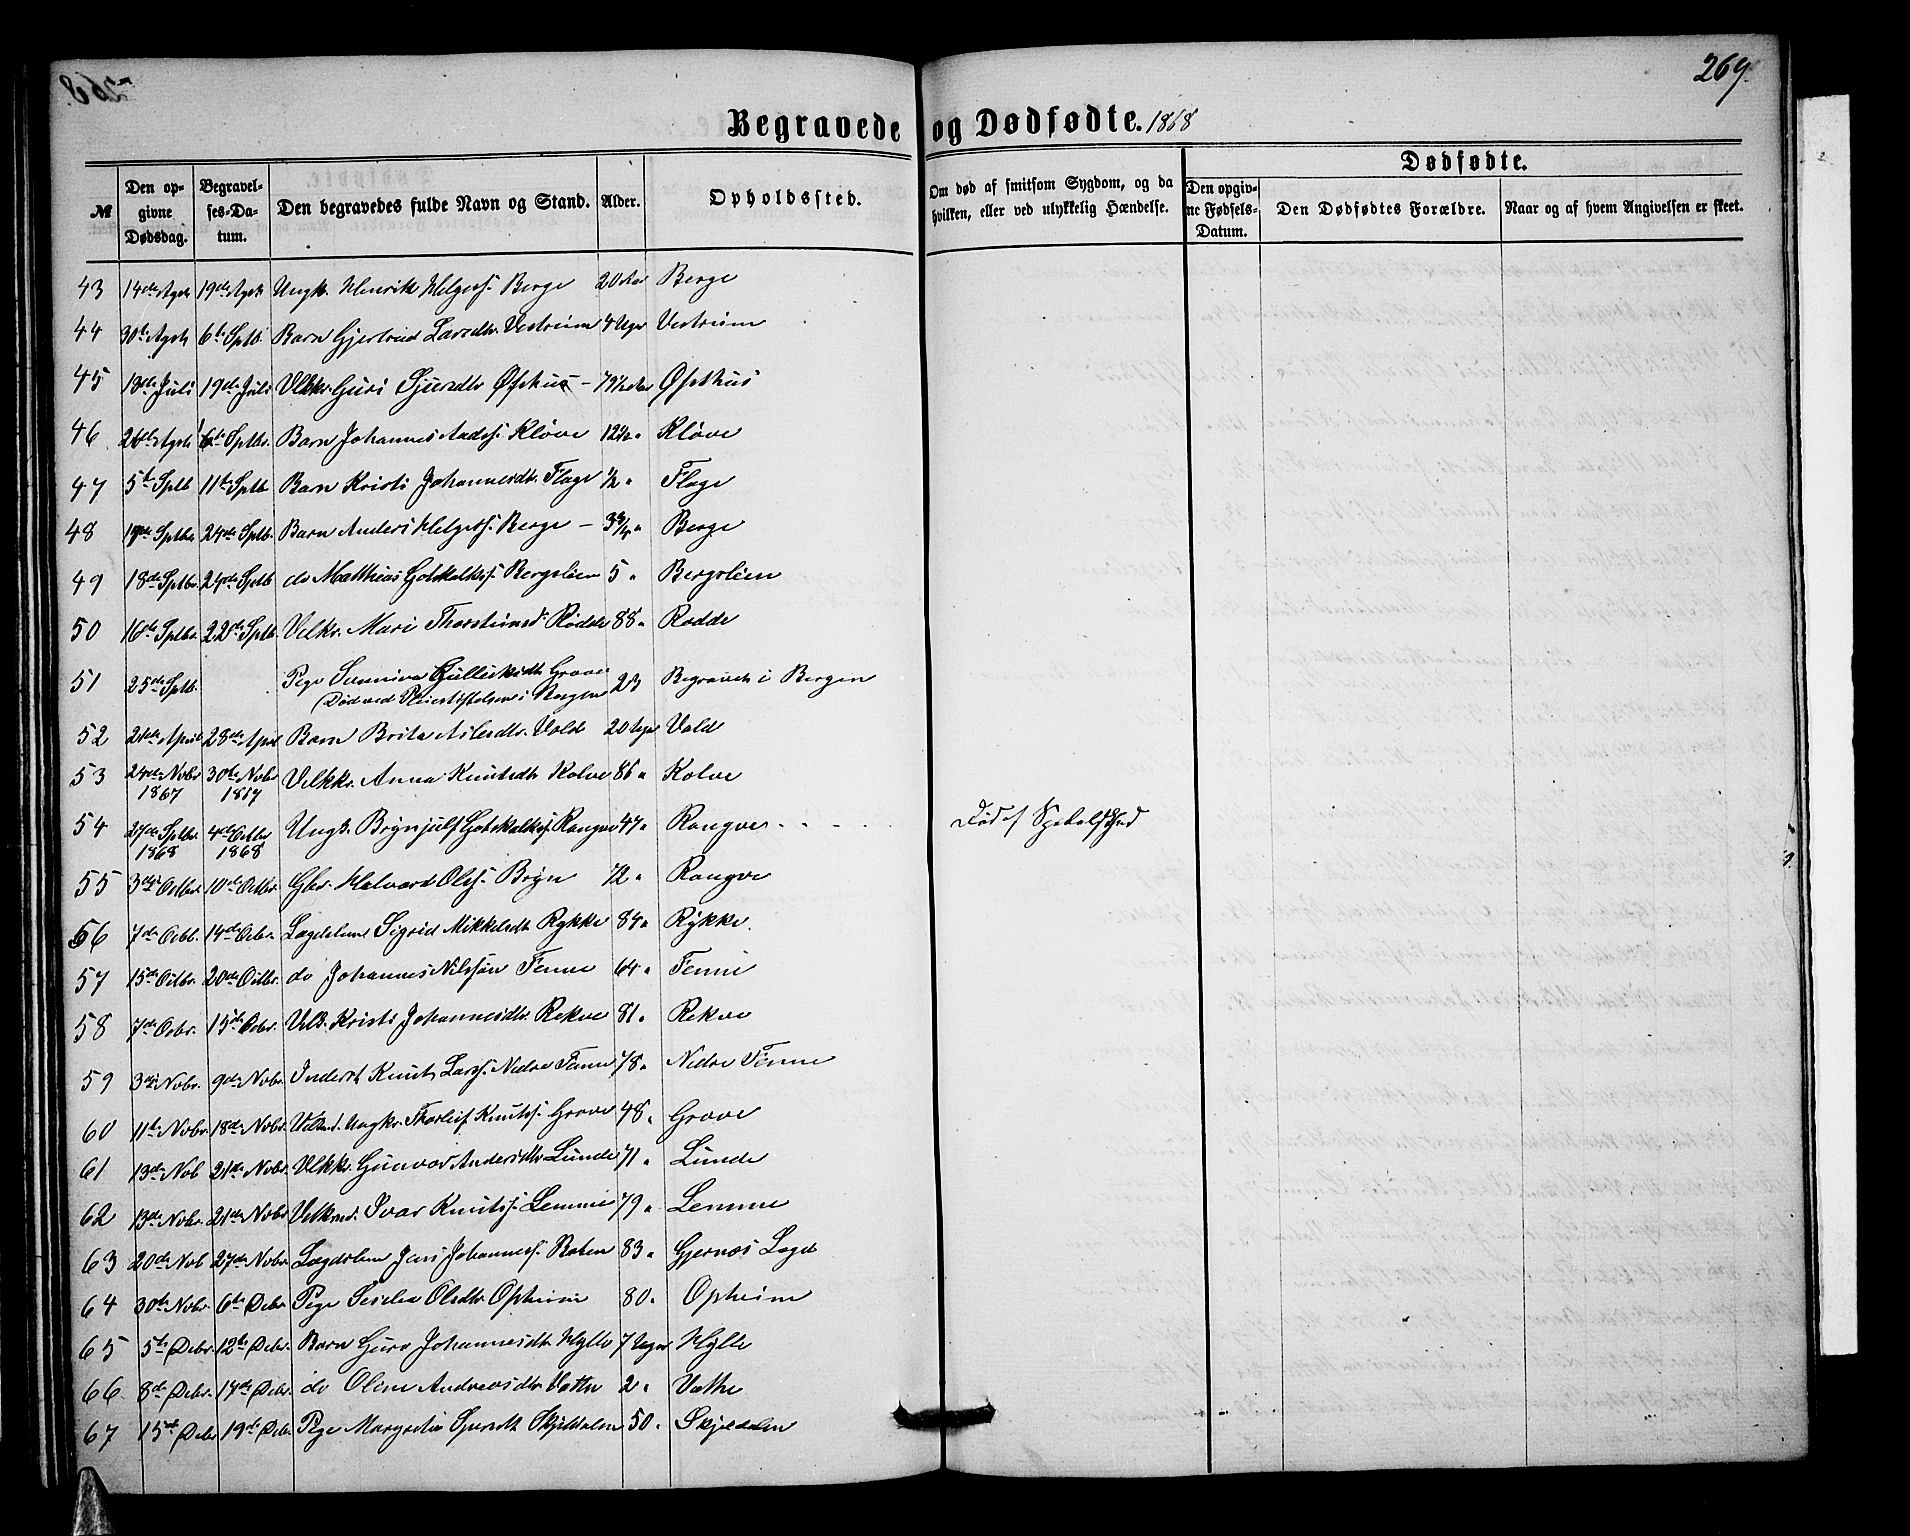 269.
Begravede og Dødfødte. 1868
№
Den opgivne Dødsdag.
Begravelses-Datum.
Den begravedes fulde Navn og Stand.
Alder.
Opholdssted.
Om død af smitsom Sygdom, og da hvilken, eller ved ulykkelig Hændelse.
Dødfødte.
Den opgivne Fødsels-Datum.
Den Dødfødtes Forældre.
Naar og af hvem Angivelsen er skeet.
43 14de Agst 19de Agst Ungk. Henrik Helgess. Berge 20 Aar Berge
44 30te Agst 6te Sptb. Barn Gjertrud Larsdtr. Vestrum 4 Uger Vestrum
45 13de Juli 19de Juli Velkr. Guri Sjursdtr Øfsthus - 79½ Aar Øfsthus
46 26de Agst 6te Sptbr. Barn Johannes Kløve 12½ " Kløve
47 5te Sptb 11te Sptb. Barn Kristi Johannesdtr. Flage ½ " Flage
48 19de Sptbr 24de Sptb. Barn Anders Helgess. Berge - 3¾ " Berge
49 18de Sptbr. 24de Sptb do Matthias Gotskalkss. Bergslien 5 " Bergslien
50 16de Sptbr. 22de Sptb. Velkr. Mari Thorsteinsd. Rødde 88 " Rødde
51 25de Sptb. Pige Sunniva Gulleiksdtr Grove 23 Begravet i Bergen
(Død ved Pleiestiftelsen i Bergen
52 21de April 28de April Barn Brita Aslesdtr. Vold 20 Uger Vold
53 24de Nvbr 1867 30te Nvbr 1867 Velkkr. Anna Knutsdtr Kolve 86 " Kolve
54 27de Sptbr. 1868 4de Octbr 1868 Ungk. Brynjulf Gotskalkss. Rongve 47 " Rongve - - - - Død af Spedalskhed
55 3die Octbr. 10de Octbr. Gbr. Halvard Olss. Bryn 72 " Rongve
56 7de Octbr. 14de Octbr. Lægdslem Sigrid Mikkelsdtr Rykke 84 " Rykke.
57 15de Octbr. 20de Octbr. do Johannes Nilssøn Fenne 64 " Fenne
58 7de Octbr. 15de Octbr. Velk. Kristi Johannesdtr. Rekve 81 " Rekve
59 3die Nvbr. 9de Nvbr. Inderst Knut Larss. Nedre Fenne 78 " Nedre Fenne
60 11te Nvbr. 18de Nvbr. Ungkr. Thorleif Knutss. Grove 48 " Grove
61 13de Nvb 21de Nvbr. Velkkr. Gunvor Andersdtr. Lunde 71 " Lunde
62 13de Nvbr. 21de Nvbr Velkmd. Ivar Knutss. Lemme 79 " Lemme
63 20de Nvb 27de Nvbr. Lægdslem Jens Johanness. Roten 83 " Gjernæs Lægd
64 30te Nvbr. 6te Debr. Pige Seselia Olsdtr. Opheim 80 " Opheim
65 5te Debr. 12te Debr. Barn Guro Johannesdtr. Hylle 7 Uger Hylle
66 8de Debr. 14de Debr. do Oline Andreasdtr. Væthe 2 " Væthe
67 15de Debr 19de Debr. Pige Margretha Sjursdtr Skjeldalen 50 " Skjeldalen